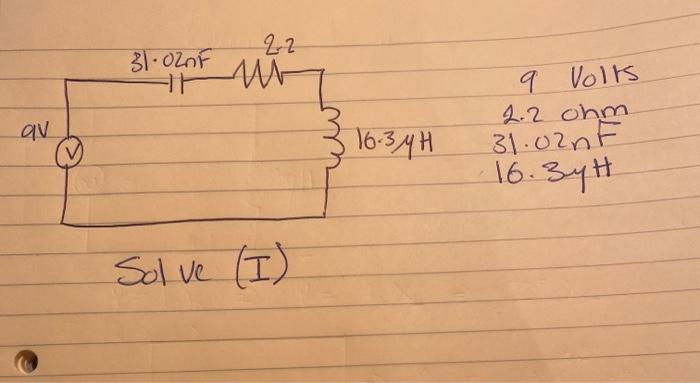 31.02nF
2.2
9V
V
16.3μH
9 Volts
2.2 ohm
31.02nF
16.3μH
Solve (I)